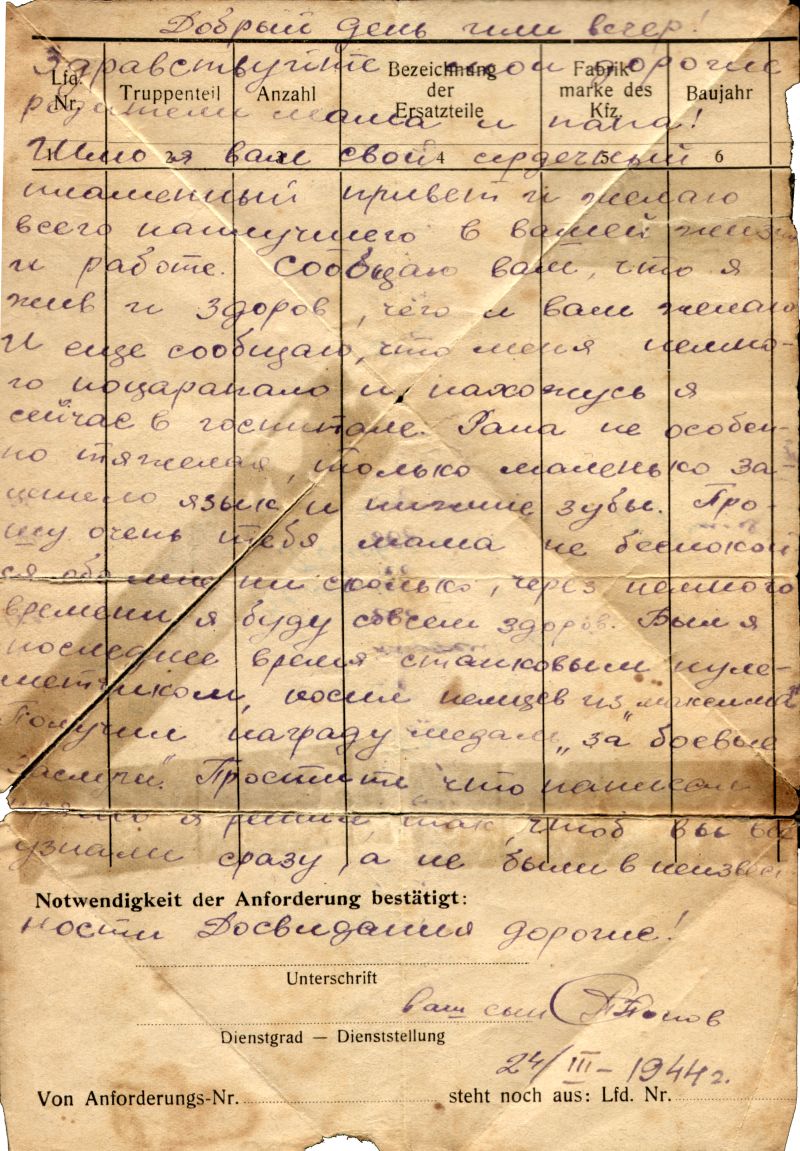 Добрый день или вечер!
Здравствуйте мои дорогие
Lfd. Nr.
Truppenteil
Anzahl
Bezeichnung der Ersatzteile
Fabrik- marke des Kfz.
Baujahr
родители мама и папа!
1 2 3 4 5 6
Шлю я вам свой сердечный
пламенный привет и желаю
всего наилучшего в вашей жизни
и работе. Сообщаю вам, что я
жив и здоров, чего и вам желаю
И еще сообщаю, что меня немно-
го поцарапало и нахожусь я
сейчас в госпитале. Рана не особен-
но тяжелая, только маленько за-
цепило язык и нижние зубы. Про-
шу очень тебя мама не беспокой
ся обо мне ни сколько, через немного
времени я буду совсем здоров. Был я
последнее время станковым пуле-
метчиком, косил немцев из „максима"
Получил награду медаль „за боевые
заслуги". Простите, что написал
прямо я решил так, чтоб вы все
узнали сразу, а не были в неизвест
Notwendigkeit der Anforderung bestätigt:
ности Досвидания дорогие!
Unterschrift
ваш сын Попов
Dienstgrad — Dienststellung
24/III-1944г.
Von Anforderungs-Nr. steht noch aus: Lfd. Nr.